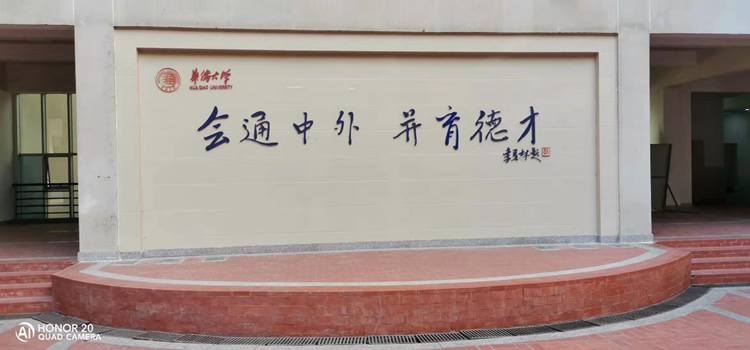 华侨大学
HUAQIAO UNIVERSITY
会通中外 并育德才
季羡林题
HONOR 20
QUAD CAMERA